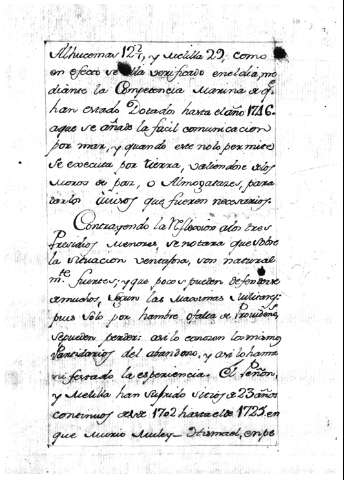 Alhucemas 12½, y Melilla 29, como
en efecto se halla verificado en el dia, me
diante la Competencia Marina de qe.
han estado Dotados hasta el año 1746.
aque se añade la facil comunicacion
por mar, y quando este no lo permite
se executa por tierra, valiendose delos
Moros de paz, o Almogatazes, para
darlos avisos que fueren necesarios.
Contrayendo la reflexion alos tres
Presidios Menores, se notara que sobre
la situacion ventajosa, son natural
mte. fuertes; y que pocos pueden defenderse
de muchos, segun las Maximas Militares;
pues solo por hambre ofalta de Providens.
sepueden perder: asi lo conocen los mismos
Partidarios del abandono, y asi lo ha ma
nifestado la experiencia. El Peñon,
y Melilla han sufrido sitios de 23 años
continuos desde 1702 hasta el de 1725, en
que Murio Muley Ismael, en pe